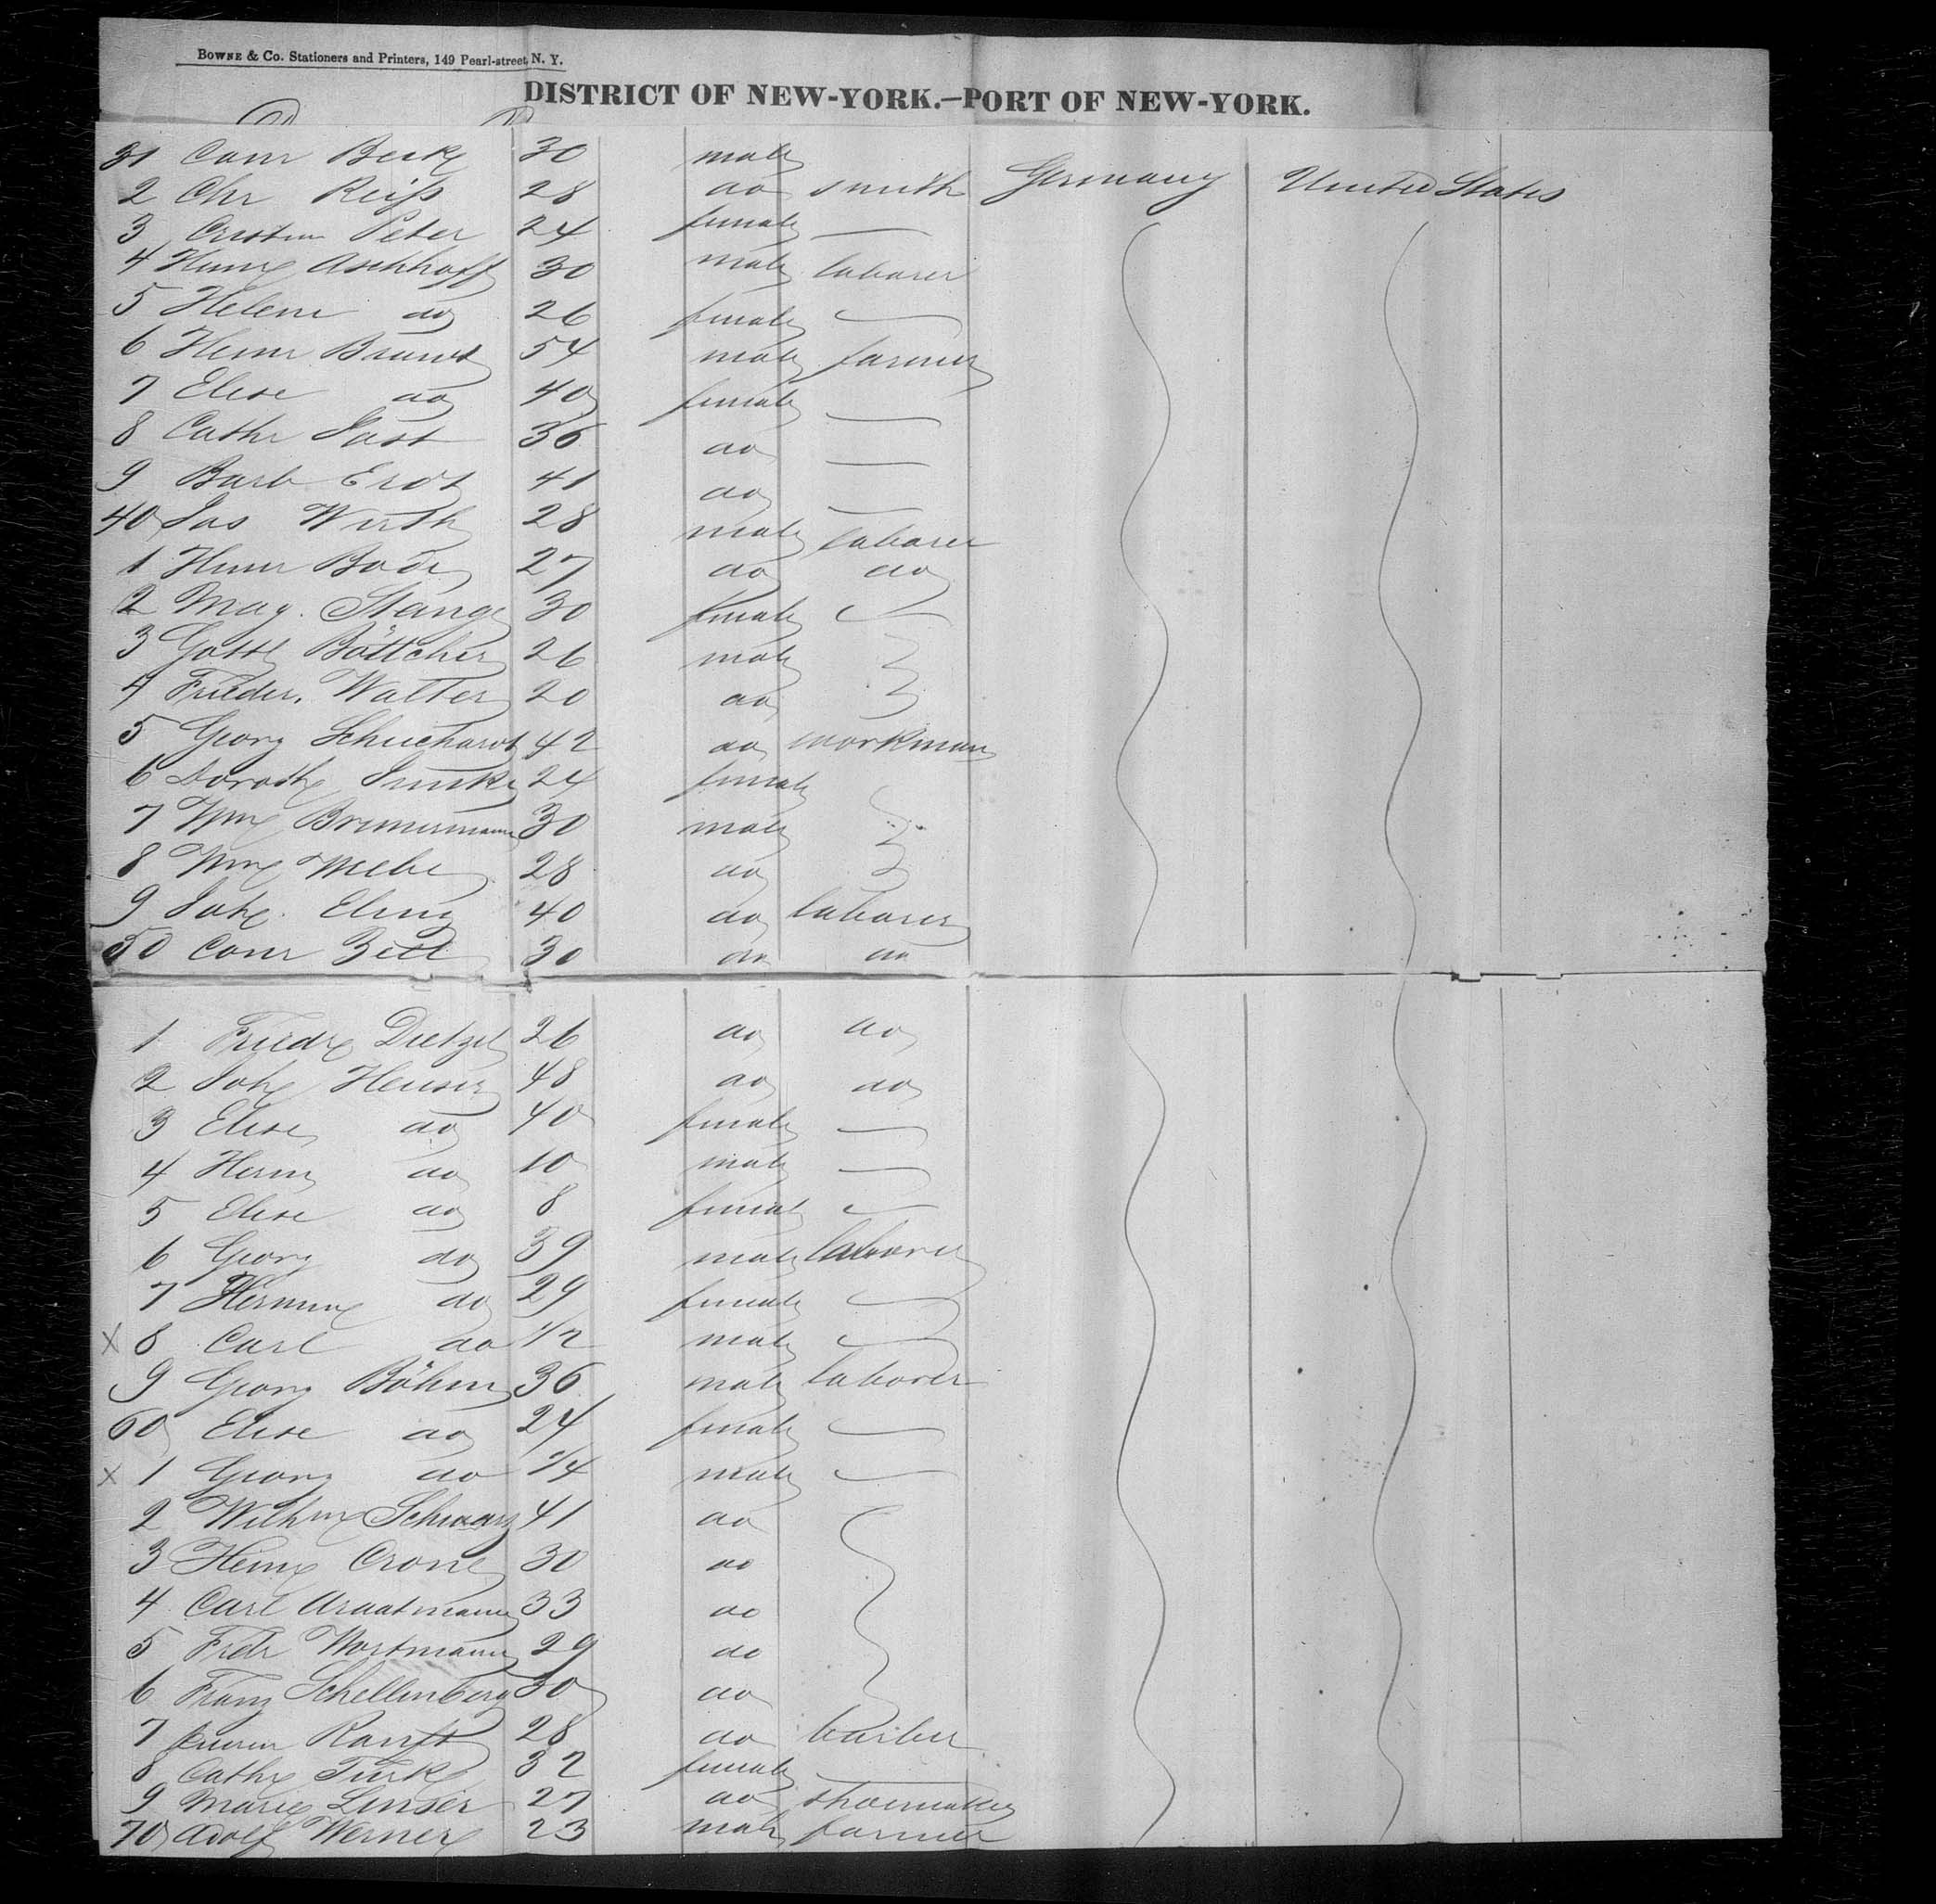 BOWNE & Co. Stationers and Printers, 149 Pearl-street, N. Y.
DISTRICT OF NEW-YORK.—PORT OF NEW-YORK.
31 Conr 30 male
2 Chr Reiss 28 do smith Germany United States
3 Peter 24 female —
4 Henry Aschhoff 30 male laborer
5 Helene do 26 female —
6 Henr Brandt 54 male farmer
7 Elise do 40 female —
8 Cathr Jost 36 do —
9 Barb Erdt 41 do —
40 Jos Wirth 28 male laborer
1 Henr Bode 27 do do
2 Mag. Stange 30 female —
3 Gottl Böttcher 26 male
4 Frieder. Walter 20 do
5 Georg Schuchardt 42 do workman
6 Dorothe 24 female
7 Wm 30 male
8 Wm 28 do
9 Joh. 40 do laborer
50 Conr Zell 30 do do
1 Friedr Dietzel 26 do do
2 Joh Heuser 48 do do
3 Elise do 40 female —
4 Herm do 10 male —
5 Elise do 8 female —
6 Georg do 39 male laborer
7 Hermine do 29 female —
X 8 Carl do 1/2 male —
9 Georg Böhm 36 male laborer
60 Elise do 24 female —
X 1 Georg do 1/4 male —
2 Wilhm Schwarz 41 do
3 Henry Crone 30 do
4 Carl 33 do
5 Fredr Wortmann 29 do
6 Franz Schellenberg 30 do
7 Ranft 28 do barber
8 Cathr Turk 32 female —
9 Marie Linser 27 do shoemaker
70 Adolf Werner 23 male farmer